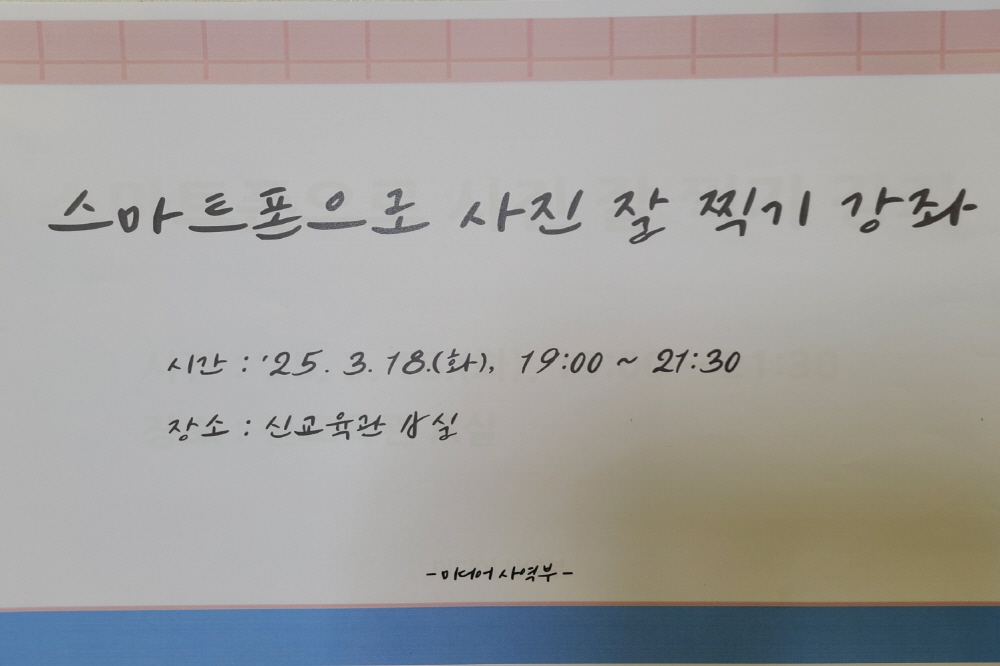 스마트폰으로 사진 잘 찍기 강좌
시간 : '25. 3. 18.(화), 19:00 ~ 21:30
장소 : 신교육관 실
- 미디어 사역부 -